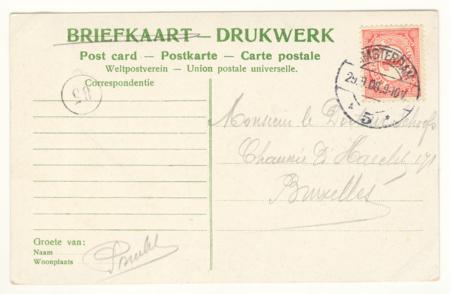 BRIEFKAART — DRUKWERK
Post card — Postkarte — Carte postale
Weltpostverein — Union postale universelle.
Correspondentie
AMSTERDAM
5
Monsieur le
Chaussée d'Haecht 171
Bruxelles
Groete van:
Naam
Woonplaats